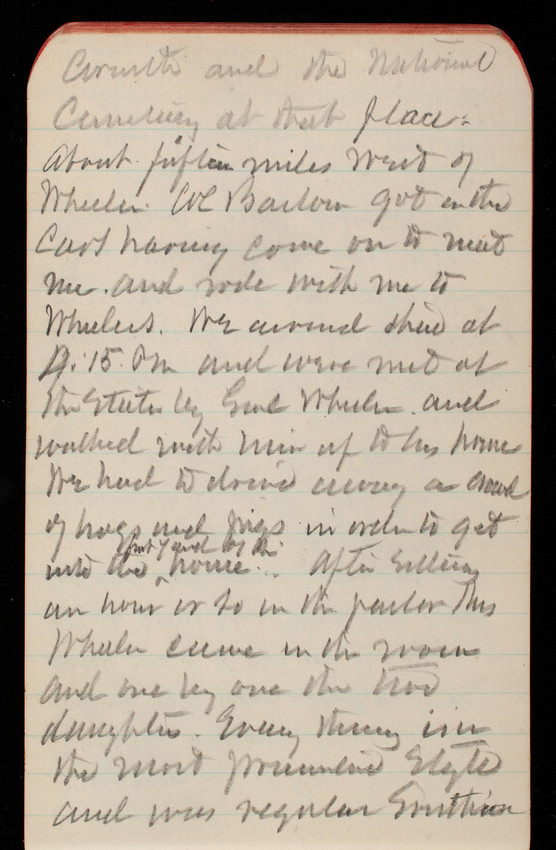 Corinth and the National
Cemetery at that place.
About fifteen miles West of
Wheeler Col Barlow got in the
Cars having come on to meet
me. and rode with me to
Wheelers. We arrived there at
15 Pm and were met at
the Station by Genl Wheeler. and
walked with him up to his home
We had to drive away a crowd
of hogs and pigs in order to get
front yard of the
into the home. After sitting
an hour or so in the parlor Mrs
Wheeler came in the room
and one by one the two
daughters. Every thing in
the most primative Style
and was regular Southern